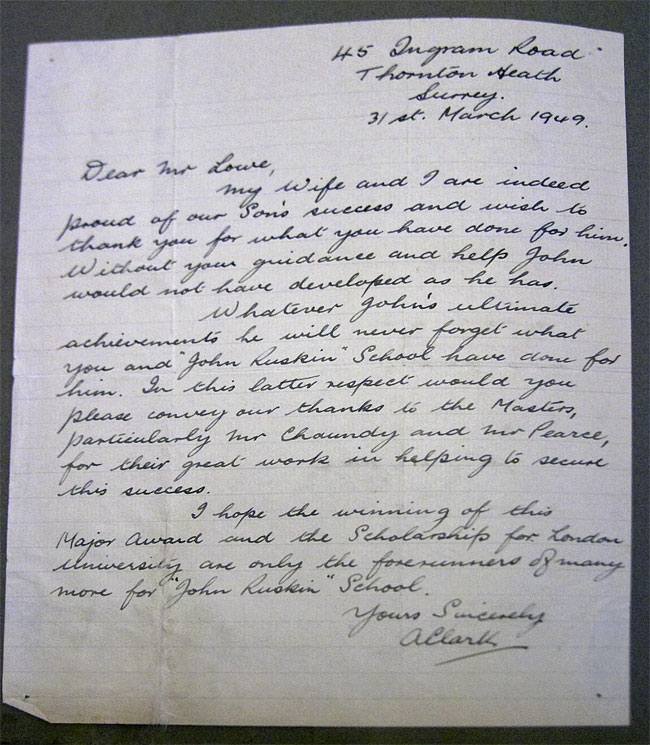 45 Ingram Road
Thornton Heath
Surrey.
31st. March 1949.
Dear Mr Lowe,
My Wife and I are indeed
proud of our Son's success and wish to
thank you for what you have done for him.
Without your guidance and help John
would not have developed as he has.
Whatever John's ultimate
achievements he will never forget what
you and "John Ruskin" School have done for
him. In this latter respect would you
please convey our thanks to the Masters,
particularly Mr Chaundy and Mr Pearce,
for their great work in helping to secure
this success.
I hope the winning of this
Major Award and the Scholarship for London
University are only the forerunners of many
more for "John Ruskin" School.
Yours Sincerely
A Clark